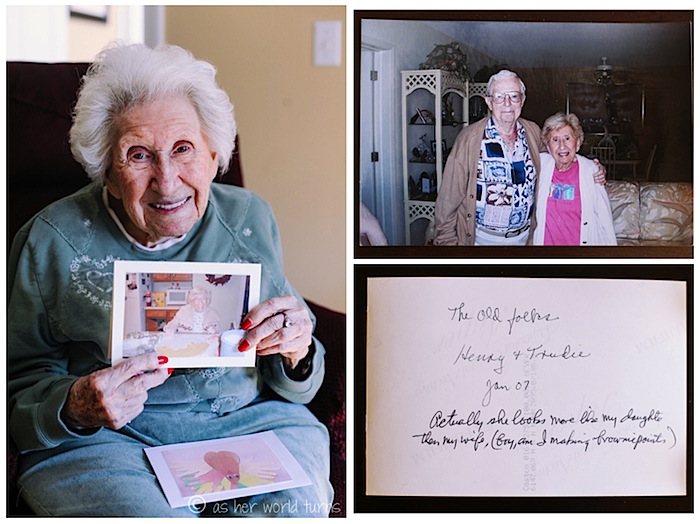 The Old folks
Henry & Trudie
Jan 07
Actually she looks more like my daughter
then my wife, (Boy, am I making brownie points)
© as her world turns